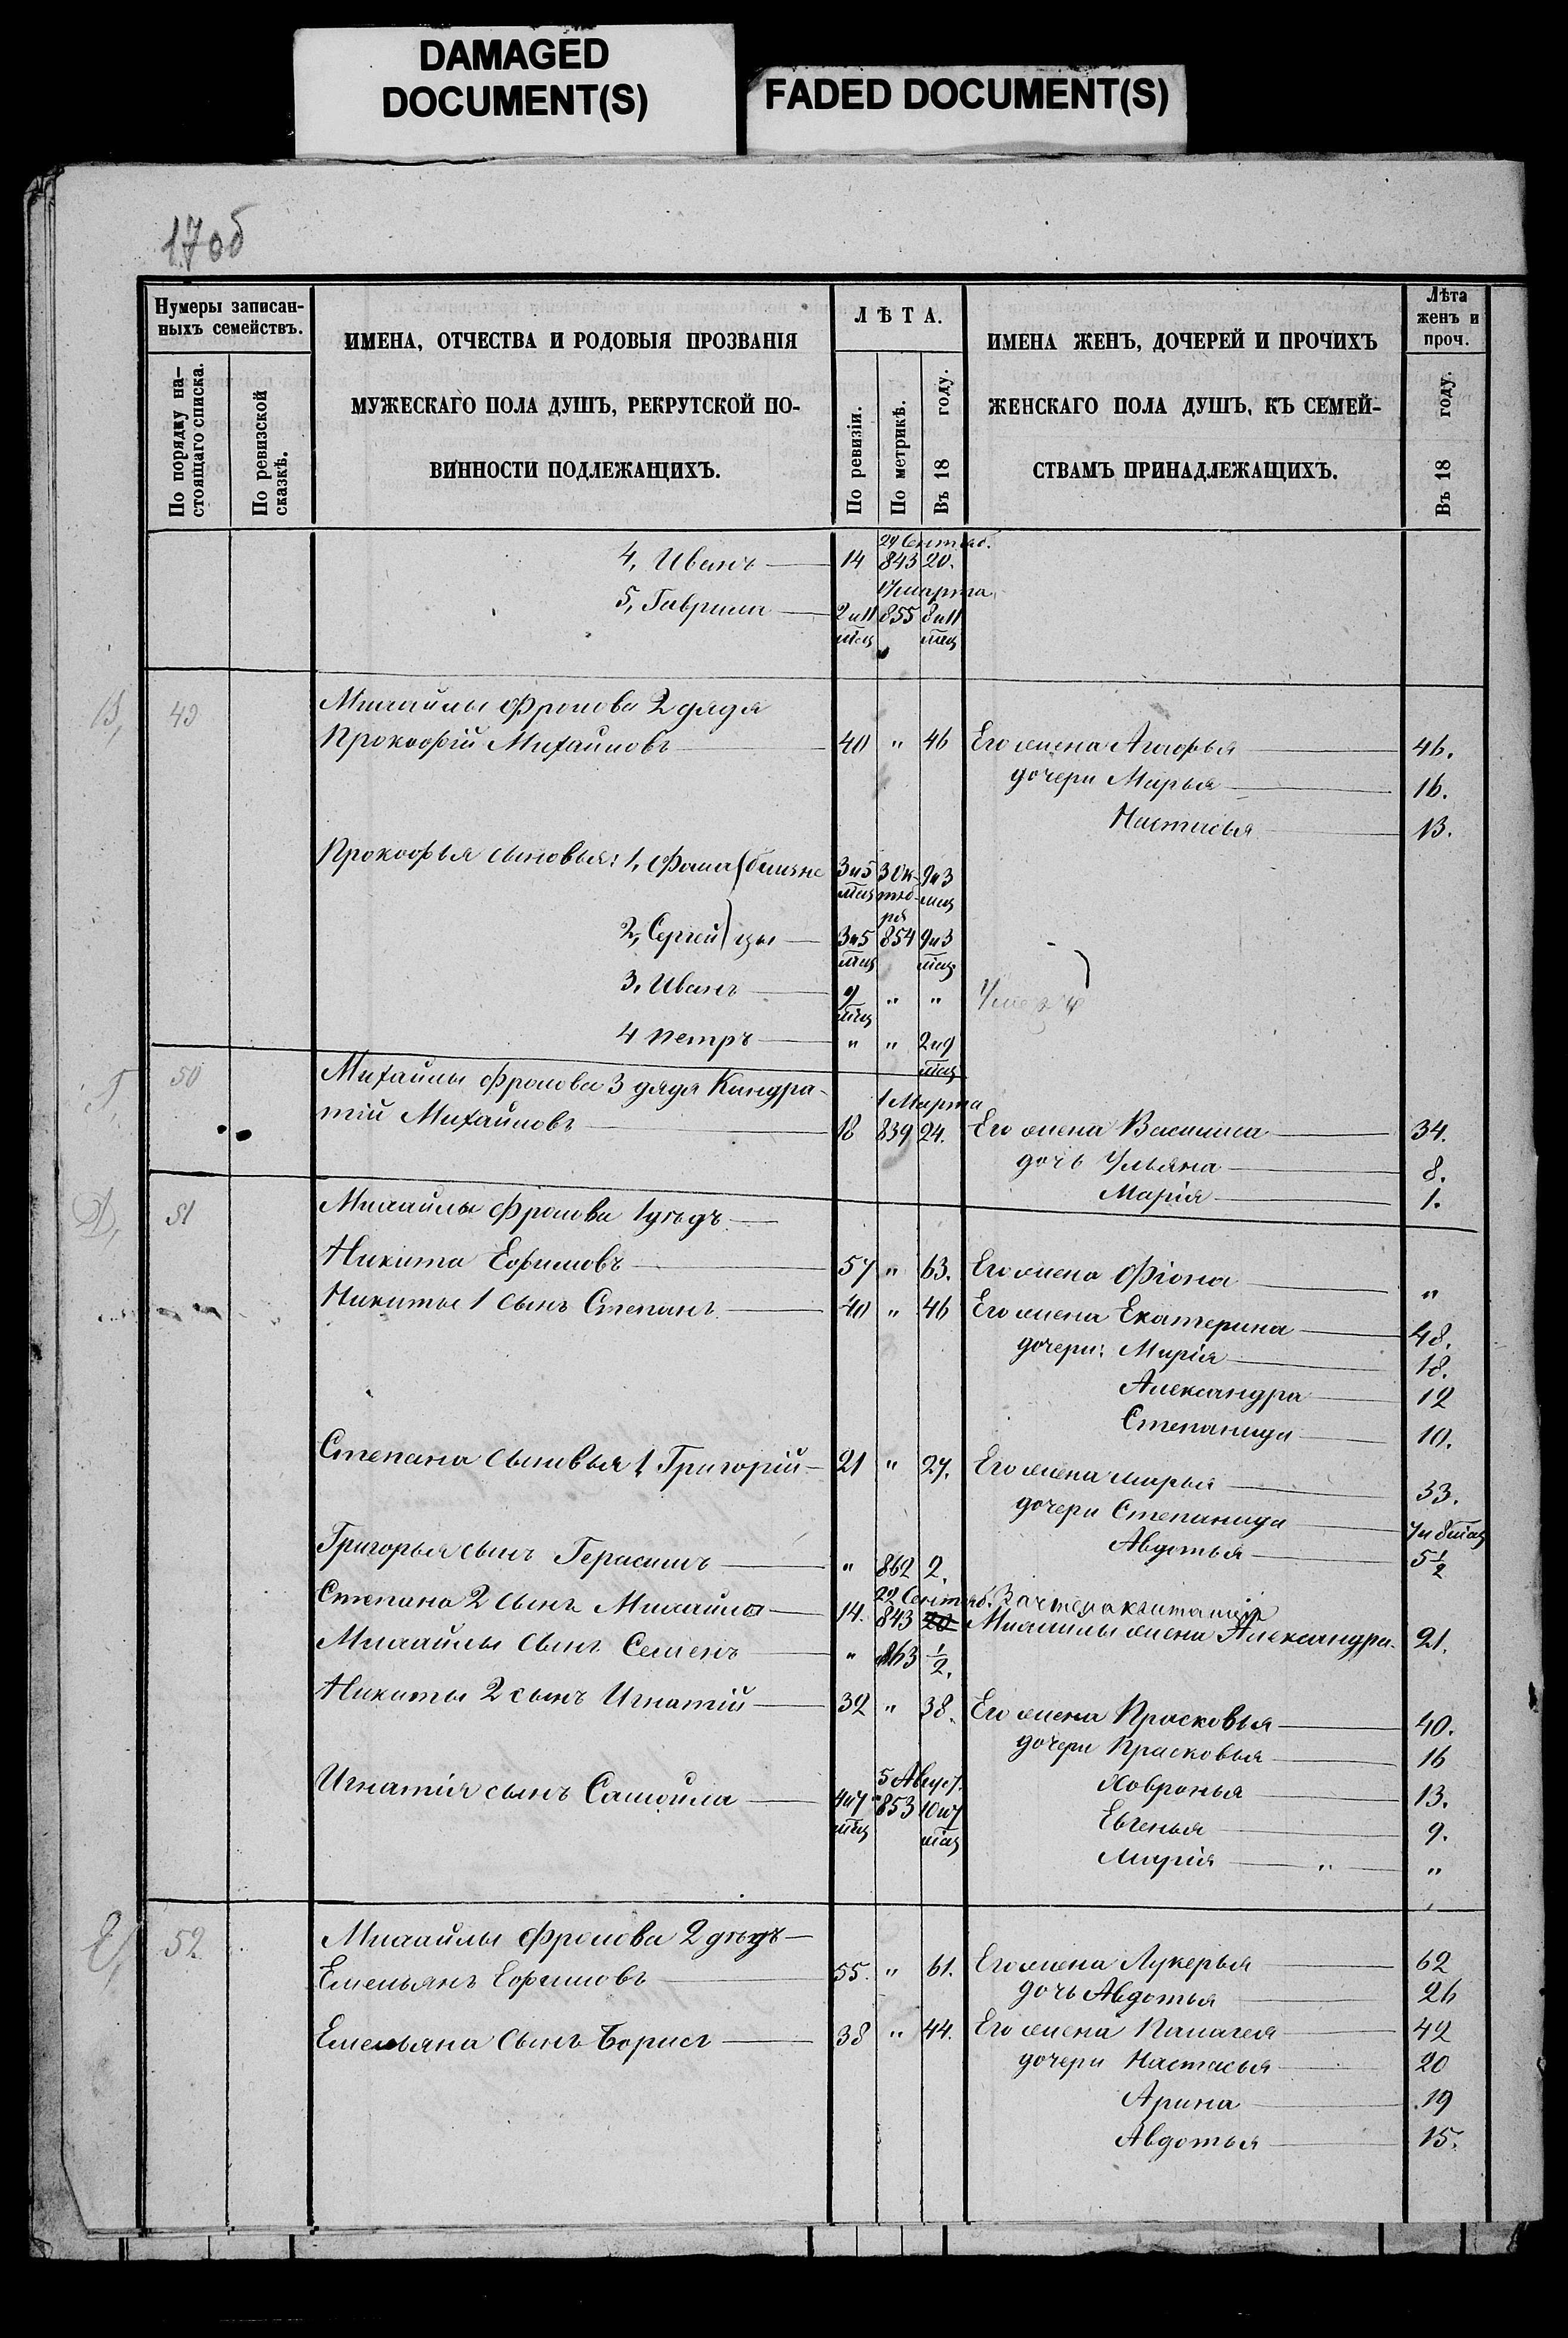 DAMAGED
DOCUMENT(S)
FADED DOCUMENT(S)
17об
Нумеры записан-
ныхъ семействъ.
По порядку на-
стоящаго списка.
По ревизской
сказкѣ.
ИМЕНА, ОТЧЕСТВА И РОДОВЫЯ ПРОЗВАНІЯ
МУЖЕСКАГО ПОЛА ДУШЪ, РЕКРУТСКОЙ ПО-
ВИННОСТИ ПОДЛЕЖАЩИХЪ.
ЛѢТА.
По ревизіи.
По метрикѣ.
Въ 18 году.
ИМЕНА ЖЕНЪ, ДОЧЕРЕЙ И ПРОЧИХЪ
ЖЕНСКАГО ПОЛА ДУШЪ, КЪ СЕМЕЙ-
СТВАМЪ ПРИНАДЛЕЖАЩИХЪ.
Лѣта
женъ и
проч.
Въ 18 году.
4, Иванъ 14 843 20.
17 марта
5, Гаврила 2 и 11 мѣц 855 8 и 11 мѣц
В, 49 Михайлы Фролова 2 дядя
Прокофій Михайловъ 40 " 46 Его жена Агафья 46.
дочери Марья 16.
Настасья 13.
Прокофья сыновья: 1, Фома (близне 3 и 5 мѣц 3 Октября 9 и 3 мѣц
2, Сергей) цы 3 и 5 мѣц 854 9 и 3 мѣц
3, Иванъ 9 мѣц " " Умеръ
4 Петръ " " 2 и 9 мѣц
Г, 50 Михайлы Фролова 3 дядя Кондра-
1 Марта
тій Михайловъ 18 839 24. Его жена Василиса 34.
дочь Ульяна 8.
Марія 1.
Д, 51 Михайлы Фролова 1 дѣдъ
Никита Ефимовъ 57 " 63. Его жена Фіона "
Никиты 1 сынъ Степанъ 40 " 46 Его жена Екатерина 48.
дочери: Марія 18.
Александра 12
Степанида 10.
Степана сыновья 1, Григорій 21 " 27. Его жена Марья 33.
дочери Степанида 7 и 8 мѣц
Авдотья 5 1/2
Григорья сынъ Герасимъ " 862 2.
22 Сентяб. Зачтена квитанція
Степана 2 сынъ Михайла 14. 843 20 Михайлы жена Александра 21.
Михайлы сынъ Семенъ " 863 1/2.
Никиты 2 сынъ Игнатій 32 " 38. Его жена Прасковья 40.
дочери Прасковья 16
5 Август.
Игнатія сынъ Самойла 4 и 7 мѣц 853 10 и 7 мѣц Ховронья 13.
Евгенья 9.
Марія " "
Е, 52 Михайлы Фролова 2 дѣдъ
Емельянъ Ефимовъ 55. " 61. Его жена Лукерья 62
дочь Авдотья 26
Емельяна сынъ Борисъ 38 " 44. Его жена Палагея 42
дочери Настасья 20
Арина 19
Авдотья 15.